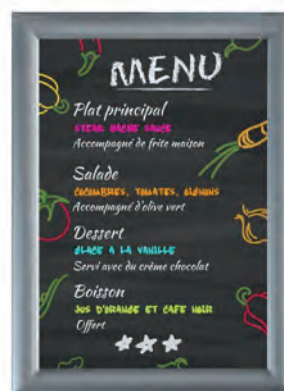 MENU
Plat principal
STEAK HACHE SAUCE
Accompagné de frite maison
Salade
COCOMBRES, TOMATES, OIGNONS
Accompagné d'olive vert
Dessert
GLACE A LA VANILLE
Servi avec du crème chocolat
Boisson
JUS D'ORANGE ET CAFE NOIR
Offert